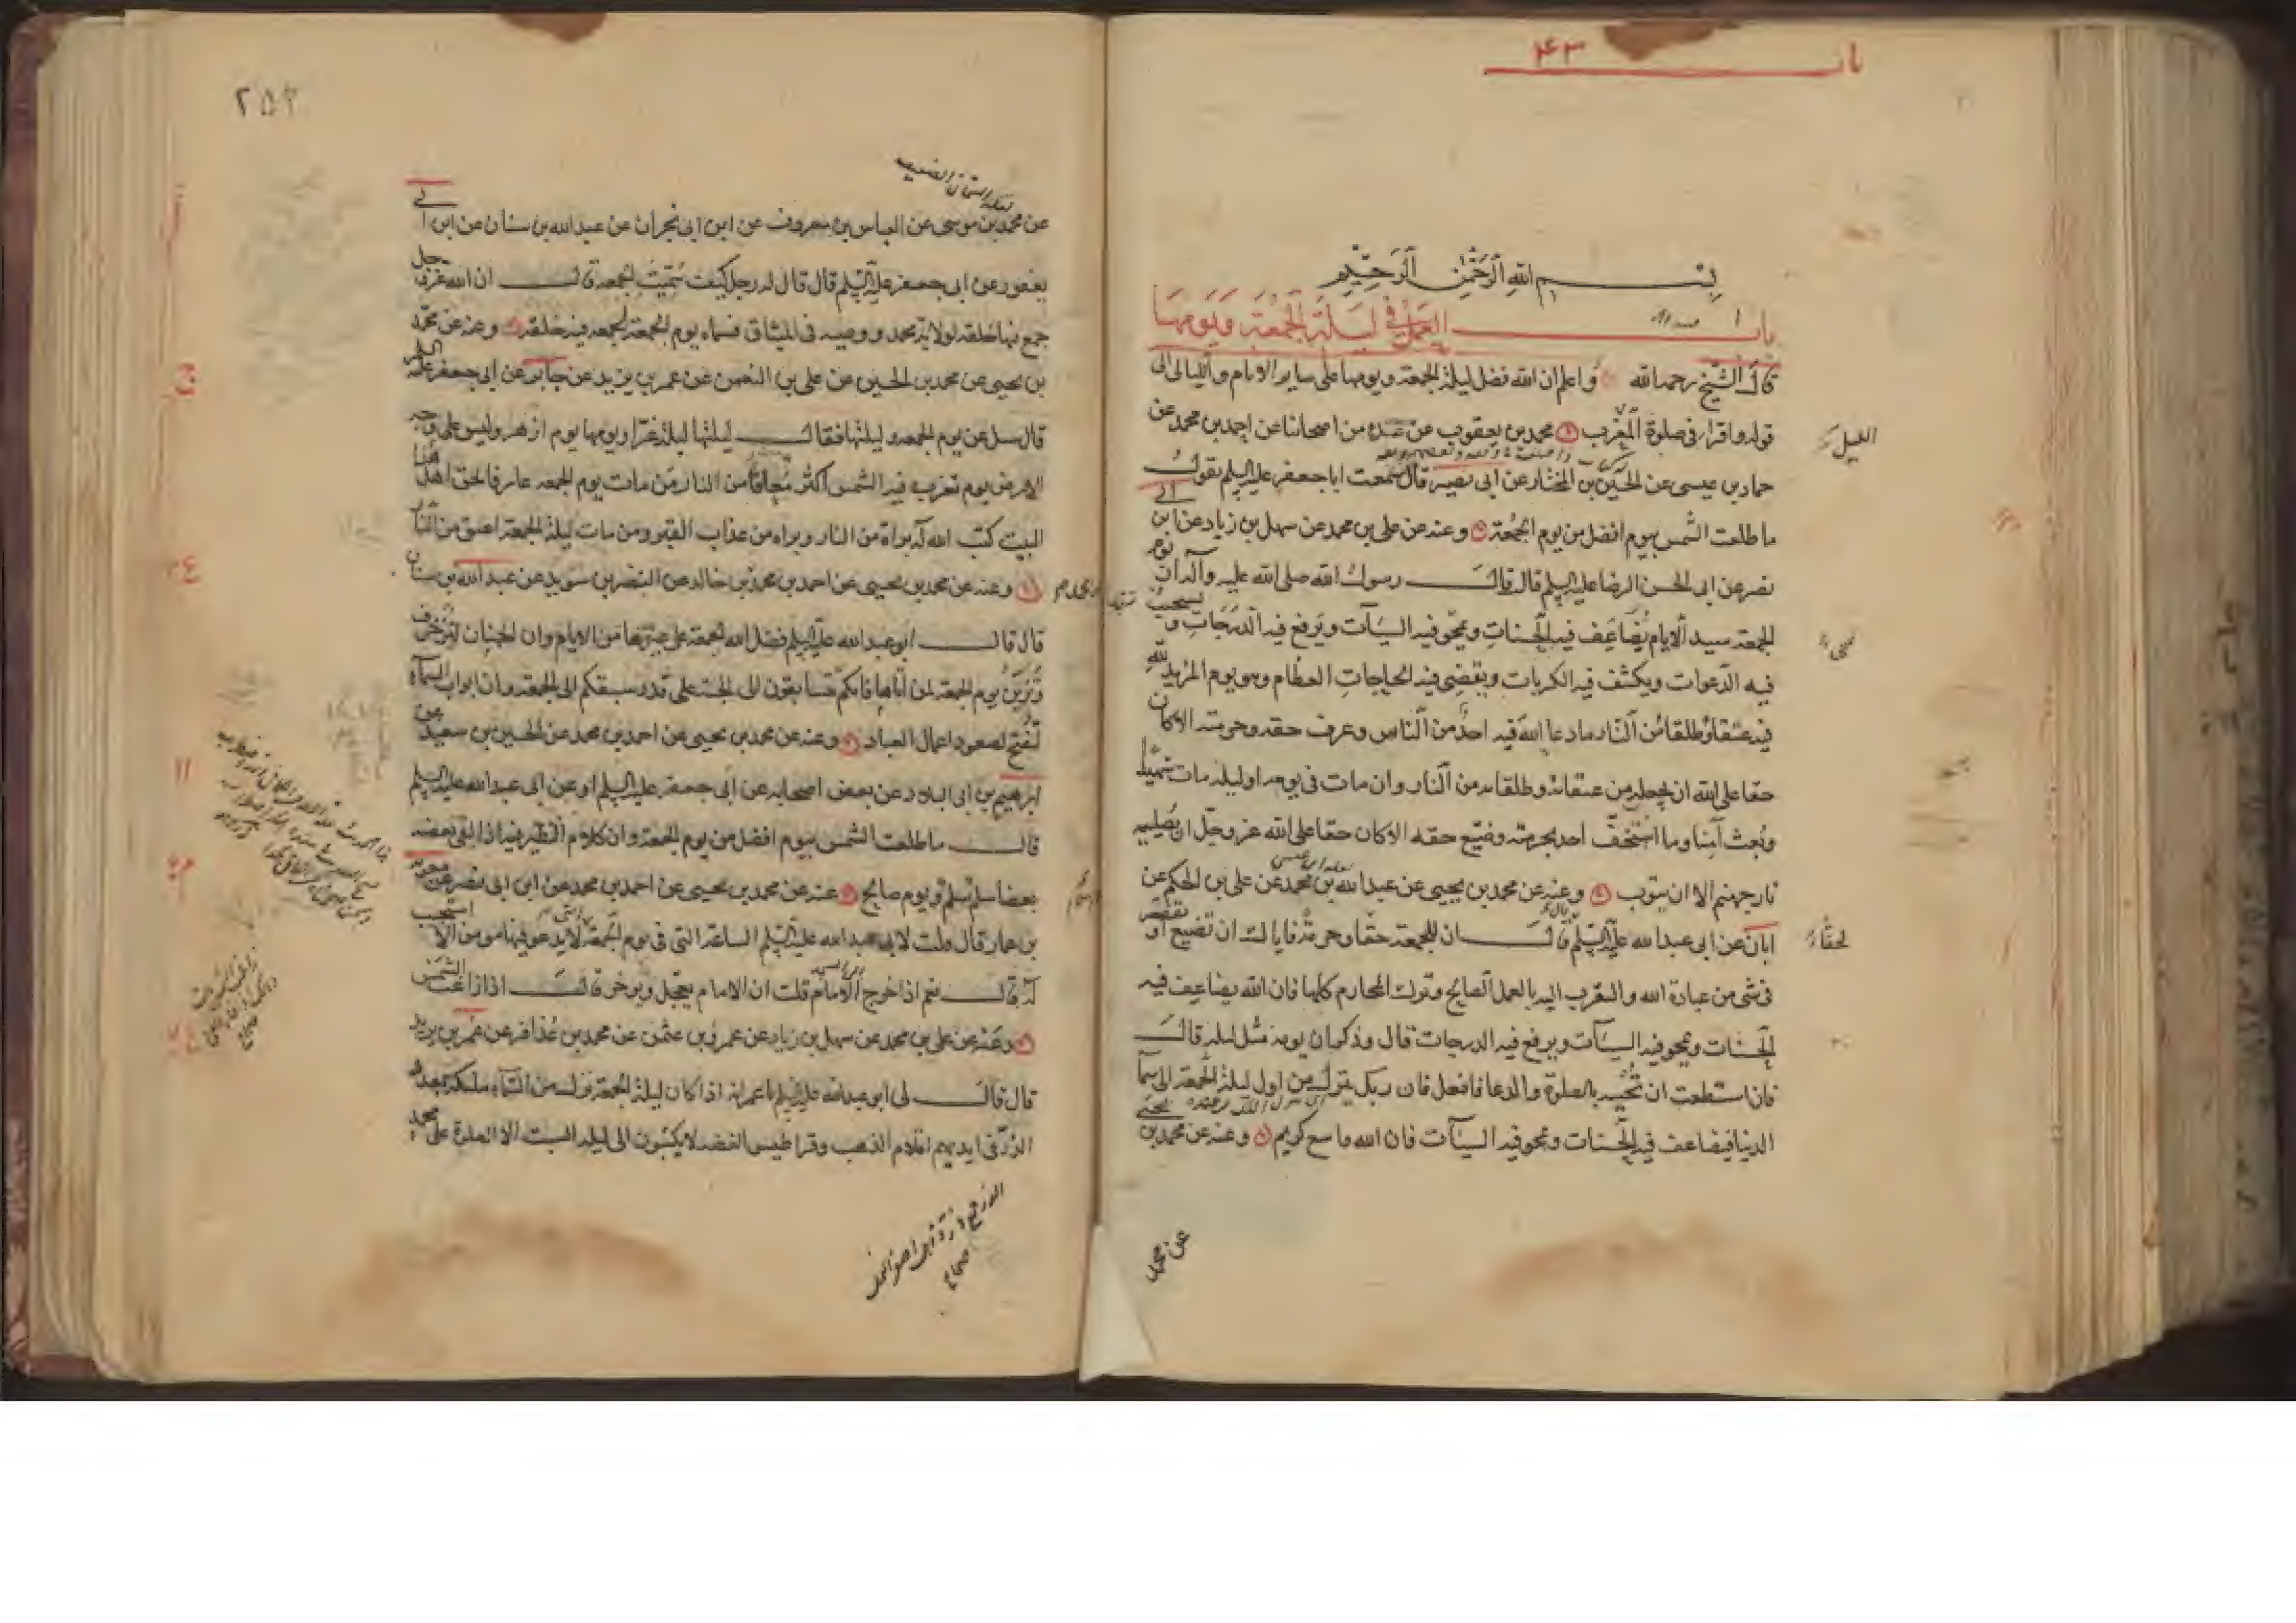 باب ۴۳
بسم الله الرحمن الرحيم
باب العمل في ليلة الجمعة ويومها
قال الشيخ رحمه الله واعلم ان الله فضل ليلة الجمعة ويومها على ساير الايام والليالي الى
قوله واقرا في صلوة المغرب محمد بن يعقوب عن عدة من اصحابنا عن احمد بن محمد عن
حماد بن عيسى عن الحسين بن المختار عن ابى بصير قال سمعت ابا جعفر عليه السلم يقول
ما طلعت الشمس بيوم افضل من يوم الجمعة وعنه عن على بن محمد عن سهل بن زياد عن ابن ابى
نصر عن ابى الحسن الرضا عليه السلم قال قال رسول الله صلى الله عليه وآله ان يوم
الجمعة سيد الايام يُضَاعَف فيه الحسنات ويمحو فيه السيآت ويرفع فيه الدرجات و يستجيب
فيه الدعوات ويكشف فيه الكربات ويقضى فيه الحاجات العظام وهو يوم المزيد لله
فيه عتقاء وطلقاء من النار ما دعا الله فيه احد من الناس وعرف حقه وحرمته الا كان
حقا على الله ان يجعله من عتقائه وطلقائه من النار وان مات في يومه او ليلته مات شهيدا
وبُعِث آمِنا وما استخف احد بحرمته وضيع حقه الا كان حقا على الله عز وجل ان يُصليه
نار جهنم الا ان يتوب وعنه عن محمد بن يحيى عن عبد الله بن محمد عن على بن الحكم عن
ابان عن ابى عبد الله عليه السلم قال ان للجمعة حقا وحرمة فاياك ان تضيع او تقصر
في شئ من عبادة الله والتقرب اليه بالعمل الصالح وترك المحارم كلها فان الله يضاعف فيه
الحسنات ويمحو فيه السيآت ويرفع فيه الدرجات قال وذكر ان يومه مثل ليلته قال
فان استطعت ان تحييه بالصلوة والدعا فافعل فان ربك ينزل من اول ليلة الجمعة الى سماء
الدنيا فيضاعف فيه الحسنات ويمحو فيه السيآت فان الله واسع كريم وعنه عن محمد بن يحيى
عن محمد
۲۵۲
عن محمد بن موسى عن العباس بن معروف عن ابن ابى نجران عن عبد الله بن سنان عن ابن ابى
يعفور عن ابى جعفر عليه السلم قال قال له رجل كيف سُمّيت الجمعة قال ان الله عز وجل
جمع فيها خلقه لولاية محمد ووصيه في الميثاق فسماه يوم الجمعة لجمعه فيه خلقه وعنه عن محمد
بن يحيى عن محمد بن الحسين عن على بن النعمن عن عمر بن يزيد عن جابر عن ابى جعفر عليه السلم
قال سئل عن يوم الجمعة وليلتها فقال ليلتها ليلة غرا ويومها يوم ازهر وليس على وجه
الارض يوم تغرب فيه الشمس اكثر مُعافا من النار من مات يوم الجمعة عارفا لحق اهل هذا
البيت كتب الله له براة من النار وبراة من عذاب القبر ومن مات ليلة الجمعة اعتق من النار
وعنه عن محمد بن يحيى عن احمد بن محمد بن خالد عن النضر بن سويد عن عبد الله بن سنان
قال قال ابو عبد الله عليه السلم فضل الله الجمعة على غيرها من الايام وان الجنان لتزخرف
وتزيّن يوم الجمعة لمن اتاها فانكم تتسابقون الى الجنة على قدر سبقكم الى الجمعة وان ابواب السماء
لتُفتح لصعود اعمال العباد وعنه عن محمد بن يحيى عن احمد بن محمد عن الحسين بن سعيد عن
ابرهيم بن ابى البلاد عن بعض اصحابه عن ابى جعفر عليه السلم او عن ابى عبد الله عليه السلم
قال ما طلعت الشمس بيوم افضل من يوم الجمعة وان كلام الطير فيه اذا لقى بعضه
بعضا سلم سلم يوم صالح وعنه عن محمد بن يحيى عن احمد بن محمد عن ابن ابى نصر عن معوية
بن عمار قال قلت لابى عبد الله عليه السلم الساعة التى في يوم الجمعة لا يدعو فيها مومن الا استجيب
له قال نعم اذا خرج الامام قلت ان الامام يعجل ويوخر قال اذا زاغت الشمس
وعنه عن على بن محمد عن سهل بن زياد عن عمرو بن عثمن عن محمد بن عُذافر عن عمر بن يزيد
قال قال لى ابو عبد الله عليه السلم يا عمر انه اذا كان ليلة الجمعة نزل من السماء ملئكة بعدد
الذرّ في ايديهم اقلام الذهب وقراطيس الفضة لا يكتبون الى ليلة السبت الا الصلوة على محمد